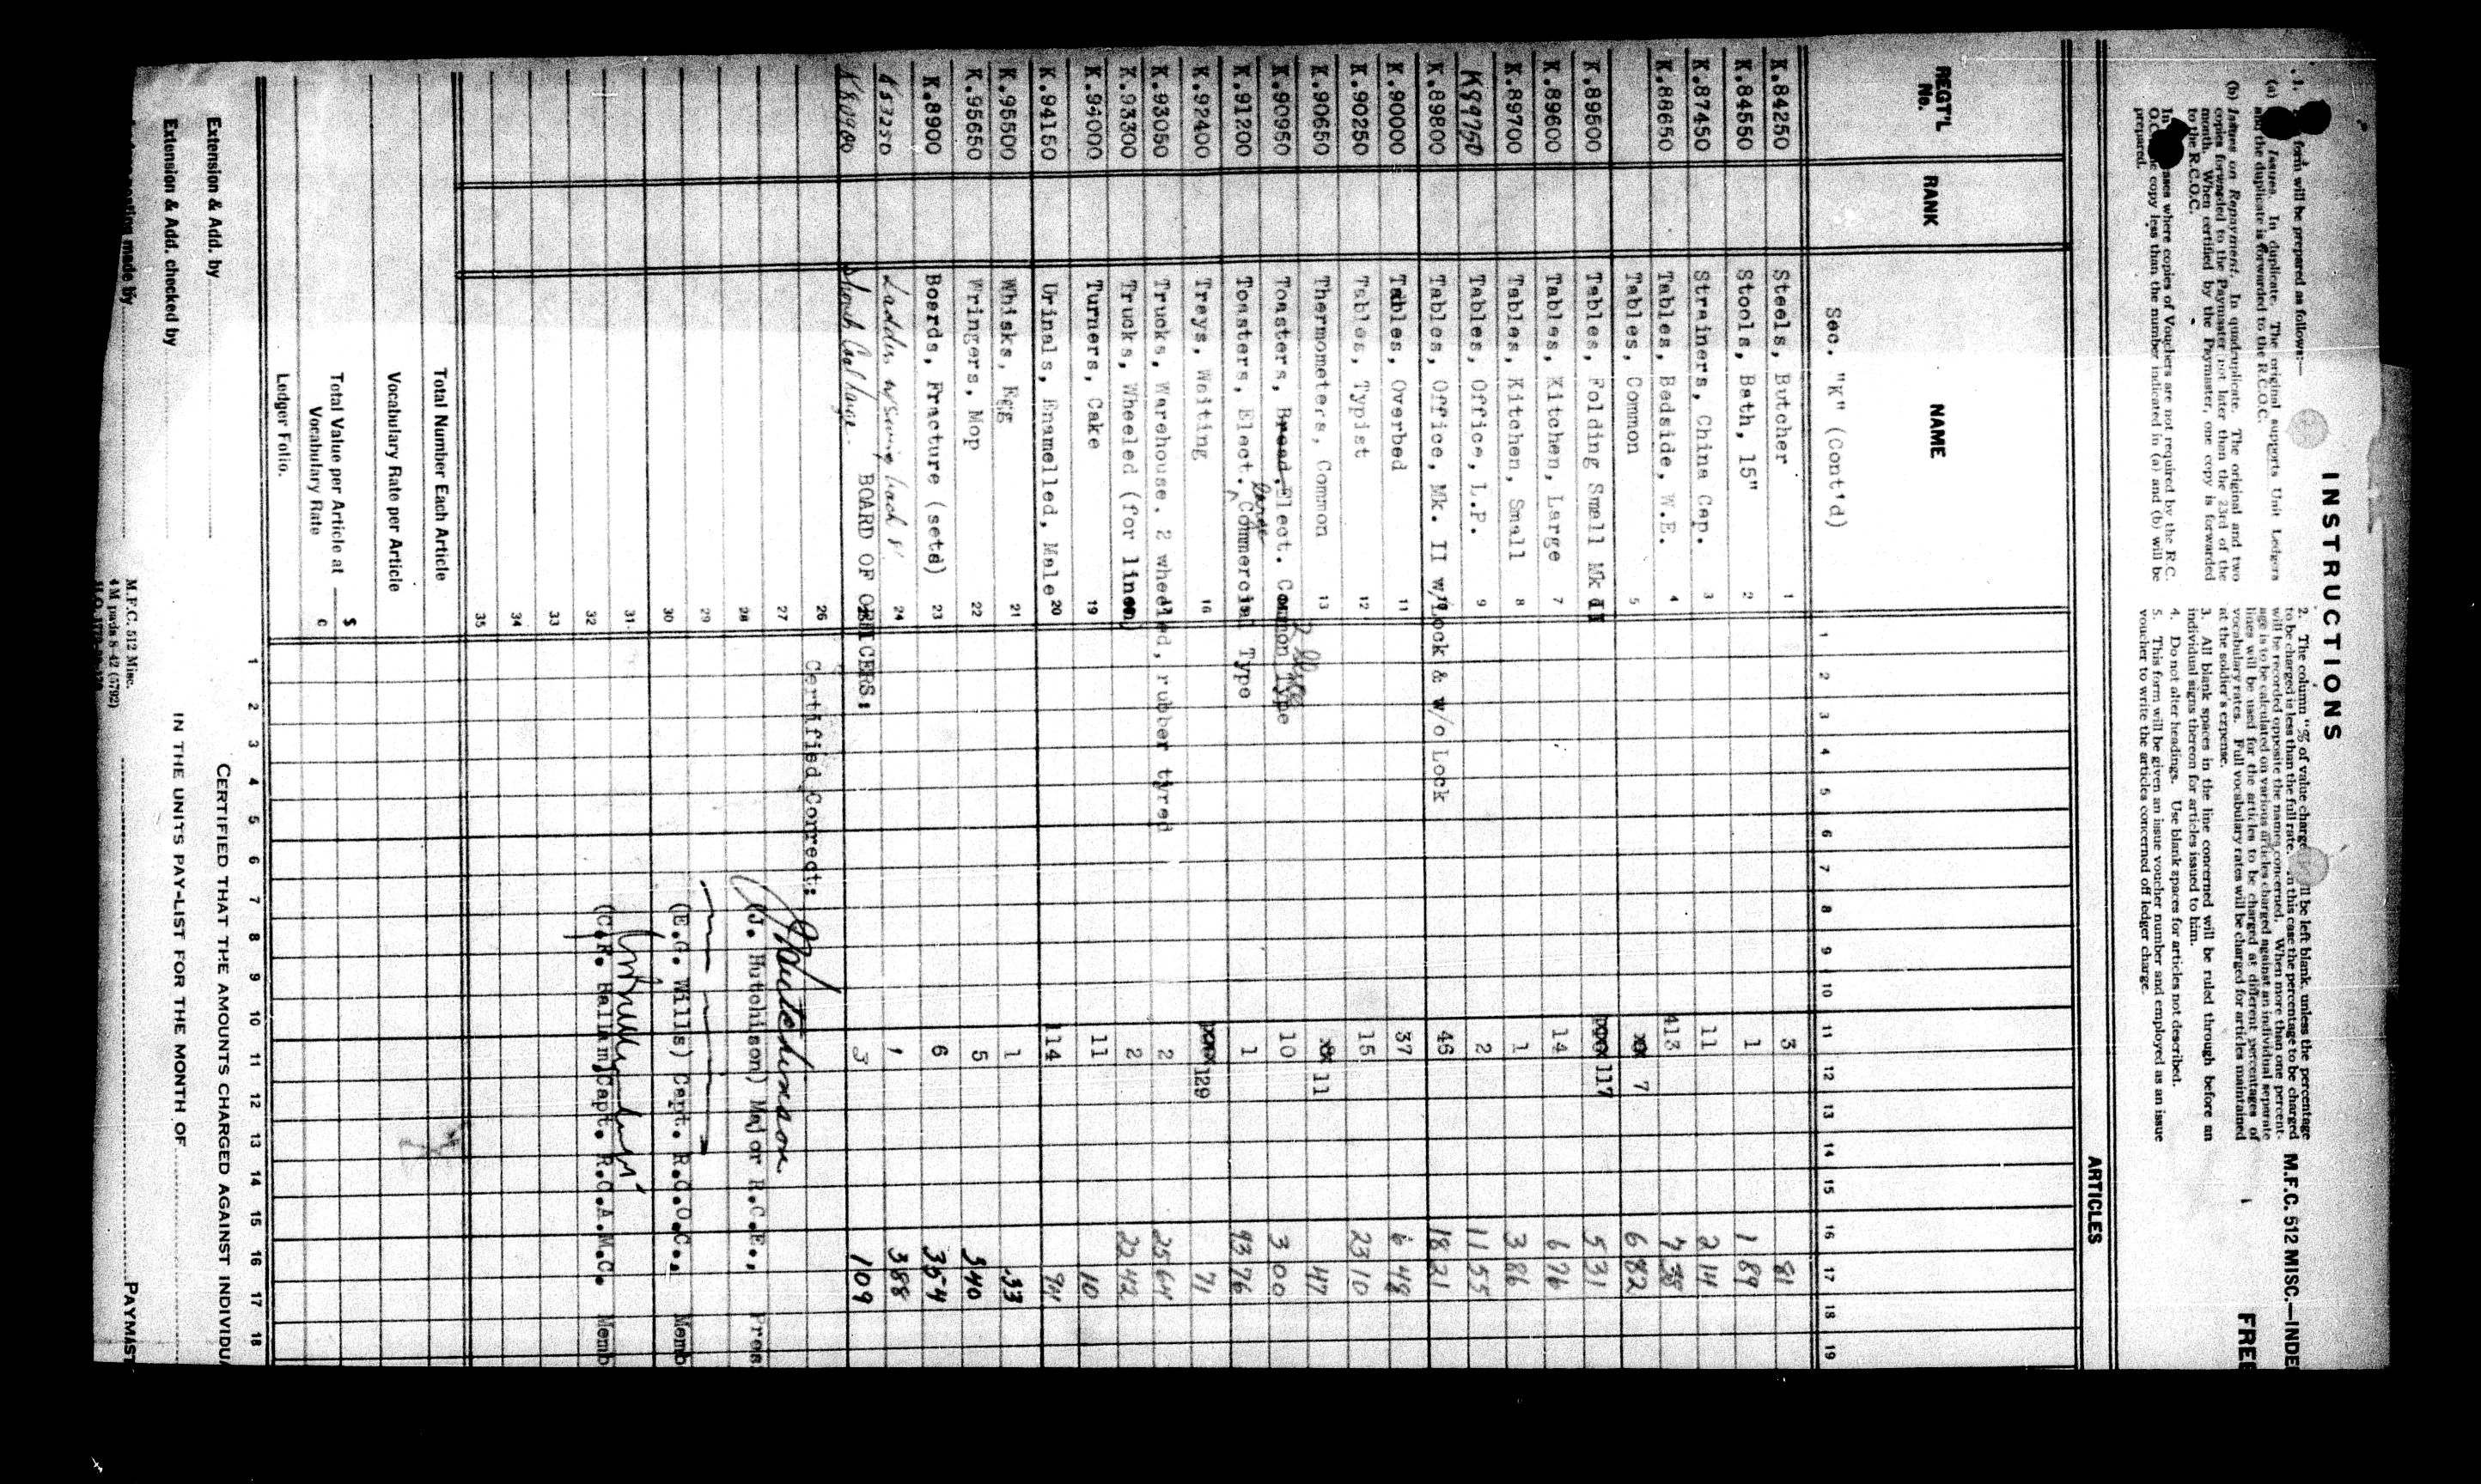 INSTRUCTIONS
M.F.C. 512 MISC.—INDE
FREE
1. form will be prepared as follows:—
(a) Issues. In duplicate. The original supports Unit Ledgers
and the duplicate is forwarded to the R.C.O.C.
(b) Issues on Repayment. In quadruplicate. The original and two
copies forwarded to the Paymaster not later than the 23rd of the
month. When certified by the Paymaster, one copy is forwarded
to the R.C.O.C.
In cases where copies of Vouchers are not required by the R.C.
O.C. one copy less than the number indicated in (a) and (b) will be
prepared.
2. The column "% of value charge will be left blank, unless the percentage
to be charged is less than the full rate. In this case the percentage to be charged
will be recorded opposite the names concerned. When more than one percent-
age is to be calculated on various articles charged against an individual separate
lines will be used for the articles to be charged at different percentages of
vocabulary rates. Full vocabulary rates will be charged for articles maintained
at the soldier's expense.
3. All blank spaces in the line concerned will be ruled through before an
individual signs thereon for articles issued to him.
4. Do not alter headings. Use blank spaces for articles not described.
5. This form will be given an issue voucher number and employed as an issue
voucher to write the articles concerned off ledger charge.
ARTICLES
REGT'L No. RANK NAME
Sec. "K" (Cont'd) 1 2 3 4 5 6 7 8 9 10 11 12 13 14 15 16 17 18 19
K.84250 Steels, Butcher 1 3 81
K.84550 Stools, Bath, 15" 2 1 1 89
K.87450 Strainers, China Cap. 3 11 2 14
K.88650 Tables, Bedside, W.E. 4 413 4 38
Tables, Common 5 xx 7 6 82
K.89500 Tables, Folding Small Mk II xxx 117 5 31
K.89600 Tables, Kitchen, Large 7 14 6 76
K.89700 Tables, Kitchen, Small 8 1 3 86
K89750 Tables, Office, L.P. 9 2 11 55
K.89800 Tables, Office, Mk. II w/Lock & w/o Lock 46 18 21
K.90000 Tables, Overbed 11 37 6 48
K.90250 Tables, Typist 12 15 23 10
K.90650 Thermometers, Common 13 xx 11 47
K.90950 Toasters, Bread, Elect. Common Type 2 slice 10 3 00
K.91200 Toasters, Elect. Large Commercial Type 1 93 76
K.92400 Trays, Waiting 16 xxx 129 71
K.93050 Trucks, Warehouse, 2 wheeled, rubber tyred 2 25 64
K.93300 Trucks, Wheeled (for linen) 2 22 42
K.94000 Turners, Cake 19 11 10
K.94150 Urinals, Enamelled, Male 20 114 94
K.95500 Whisks, Egg 21 1 .33
K.95650 Wringers, Mop 22 5 5 40
K.8900 Boards, Fracture (sets) 23 6 3 54
K53250 Ladders 24 1 3 88
K80900 3 1 09
BOARD OF OFFICERS:
26 Certified Correct:
27
28 (J. Hutchison) Major R.C.E., Pres
29
30 (E.G. Wills) Capt. R.C.O.C., Memb
31
32 (C.R. Hallam) Capt. R.C.A.M.C. Memb
33
34
35
Total Number Each Article
Vocabulary Rate per Article
Total Value per Article at Vocabulary Rate $ c
Ledger Folio.
1 2 3 4 5 6 7 8 9 10 11 12 13 14 15 16 17 18
Extension & Add. by
CERTIFIED THAT THE AMOUNTS CHARGED AGAINST INDIVIDUA
Extension & Add. checked by
IN THE UNITS PAY-LIST FOR THE MONTH OF
made by
M.F.C. 512 Misc.
4M pads 8-42 (5792)
PAYMAST